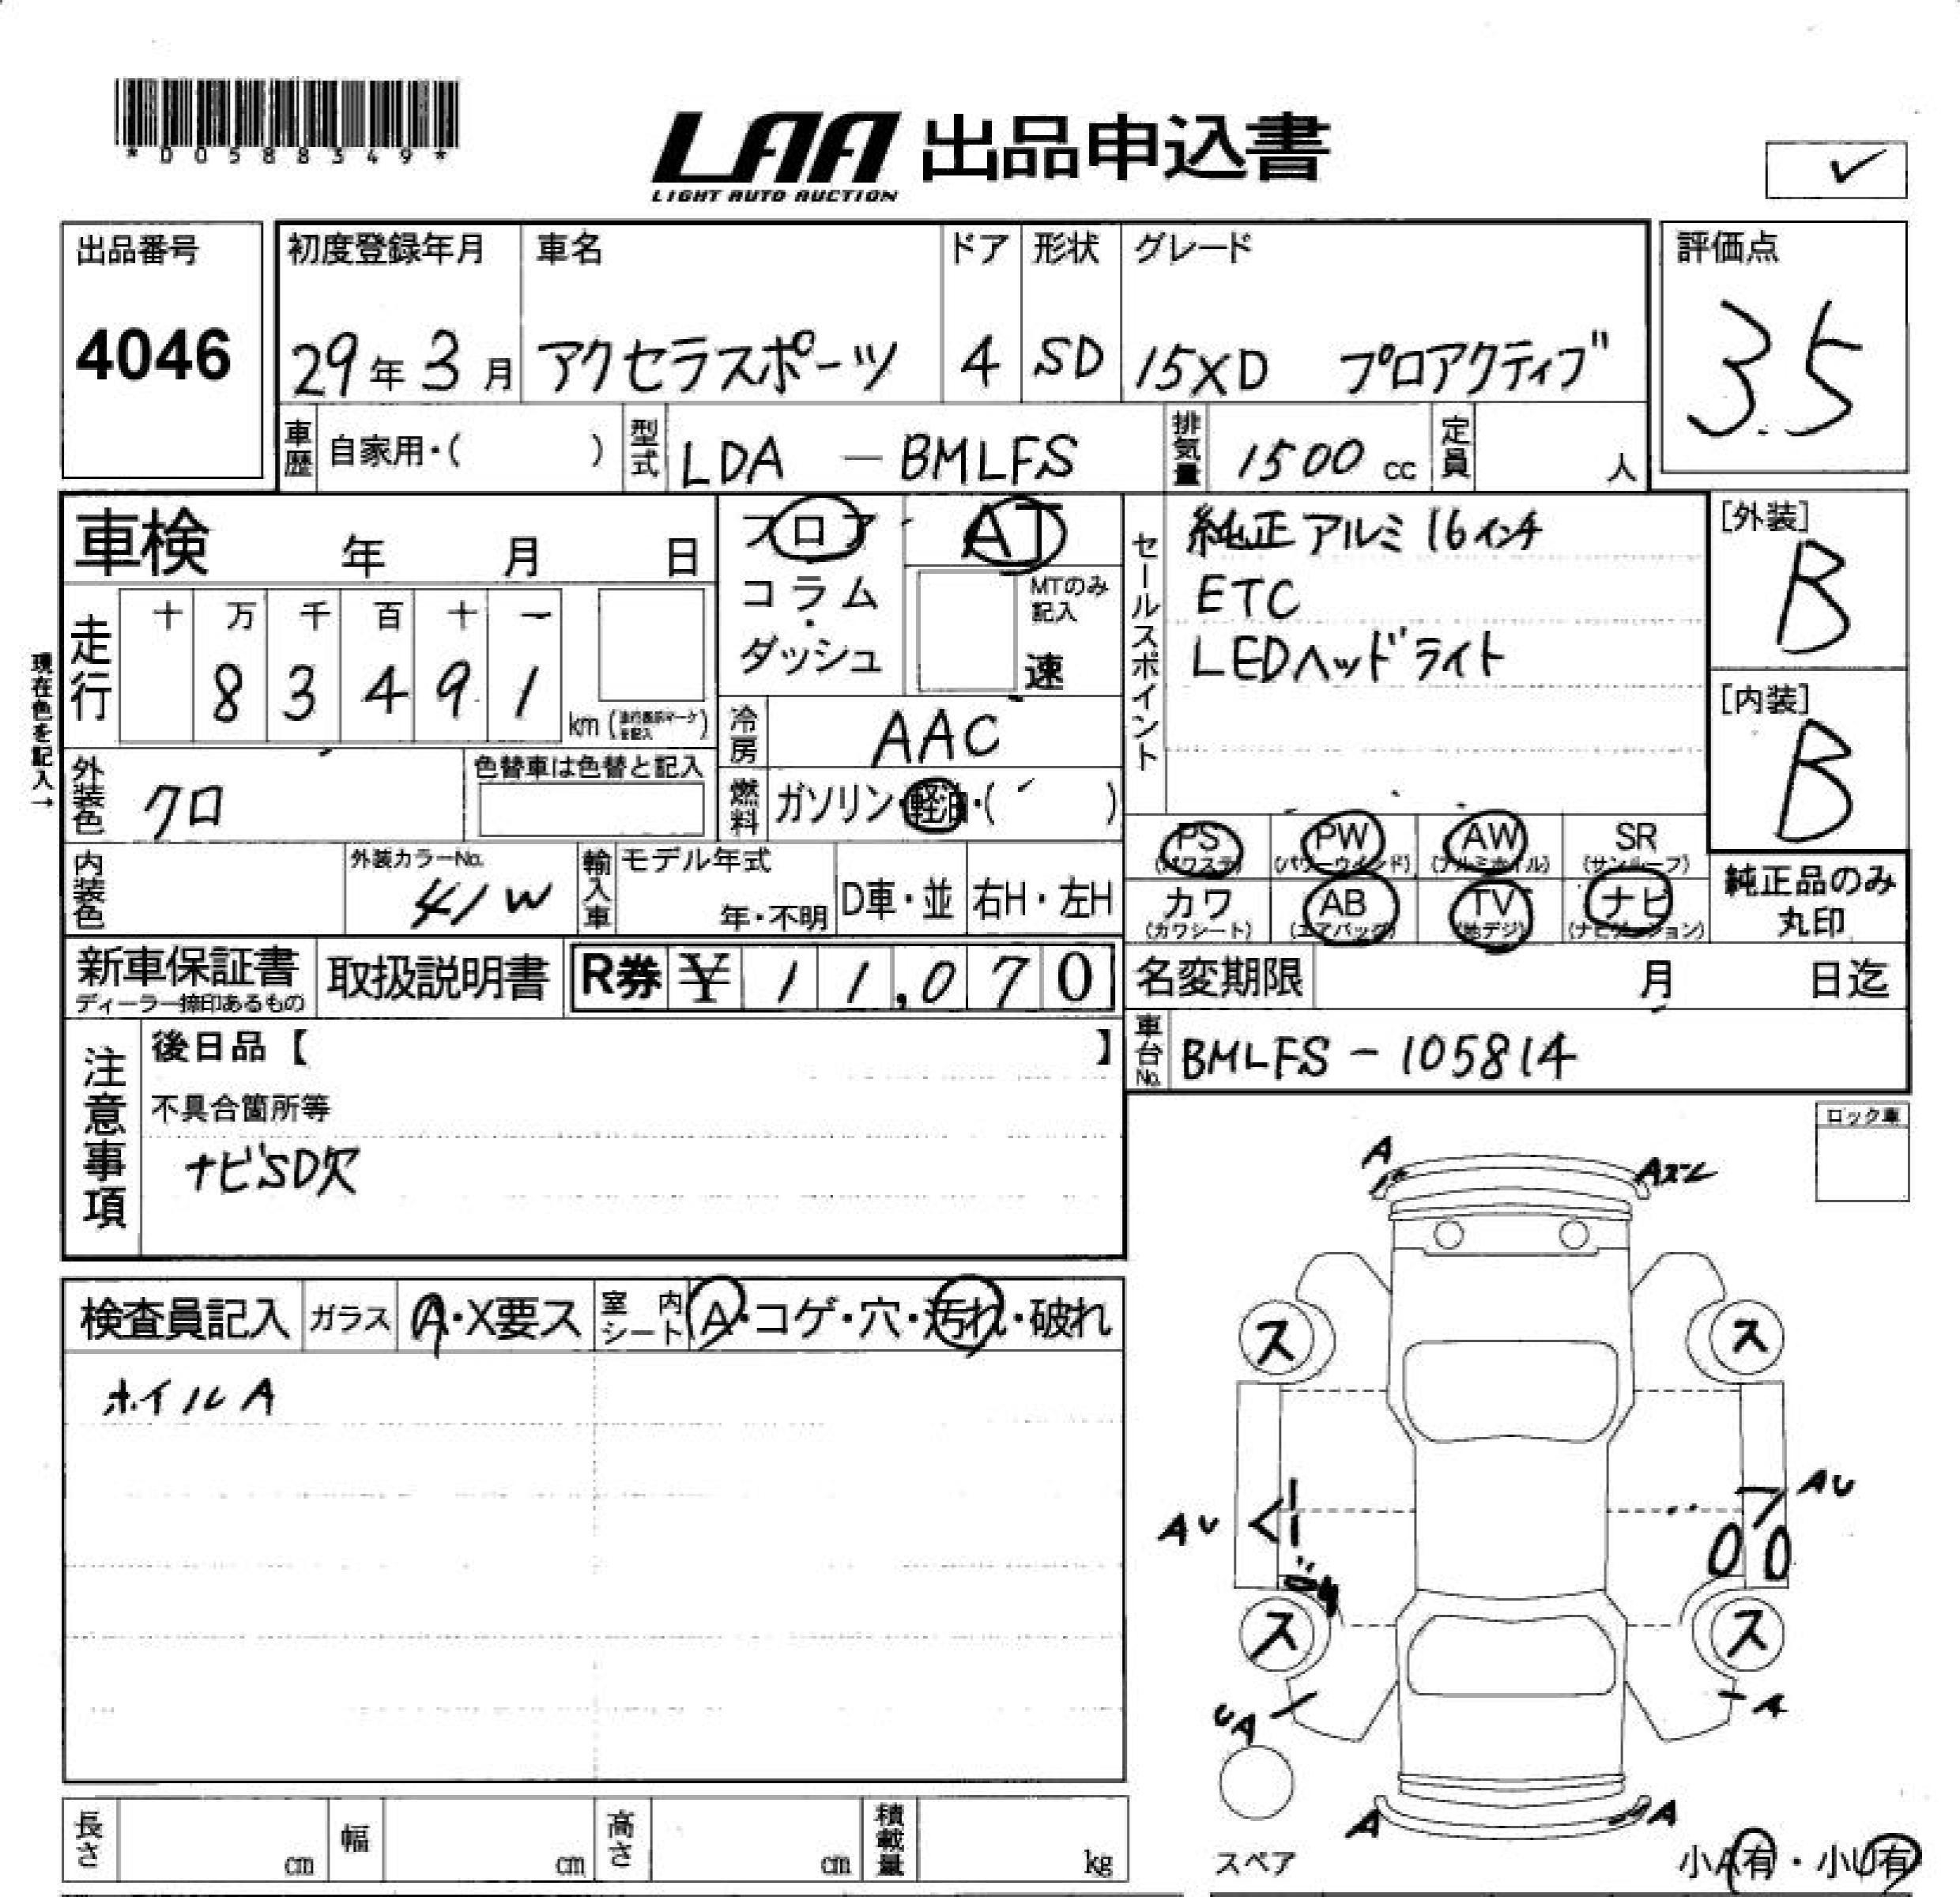 *D0588349*
LAA 出品申込書
LIGHT AUTO AUCTION
✓
出品番号
4046
初度登録年月 車名 ドア 形状 グレード
29年3月 アクセラスポーツ 4 SD 15XD プロアクティブ
評価点
3.5
車歴 自家用・( ) 型式 LDA - BMLFS 排気量 1500 cc 定員 人
車検 年 月 日
フロア AT
コラム・
ダッシュ
MTのみ記入
速
現在色を記入→
走行 十 万 千 百 十 一
8 3 4 9 1 km
冷房 AAC
燃料 ガソリン・軽油・( )
外装色 クロ 色替車は色替と記入
内装色 外装カラーNo. 41W 輸入車 モデル年式 年・不明 D車・並 右H・左H
新車保証書 取扱説明書 R券 ¥ 1 1,0 7 0
ディーラー捺印あるもの
セールスポイント
純正アルミ16インチ
ETC
LEDヘッドライト
[外装]
B
[内装]
B
PS PW AW SR
(パワステ) (パワーウインド) (アルミホイル) (サンルーフ)
カワ AB TV ナビ
(カワシート) (エアバック) (地デジ) (ナビゲーション)
純正品のみ
丸印
名変期限 月 日迄
車台No. BMLFS - 105814
注意事項
後日品【 】
不具合箇所等
ナビSD欠
ロック車
検査員記入 ガラス A・X要ス 室内シート A・コゲ・穴・汚れ・破れ
ホイルA
A
Aズレ
ス ス
AU AU
ス ス
UA A
A A
スペア
小A有・小U有
長さ cm 幅 cm 高さ cm 積載量 kg